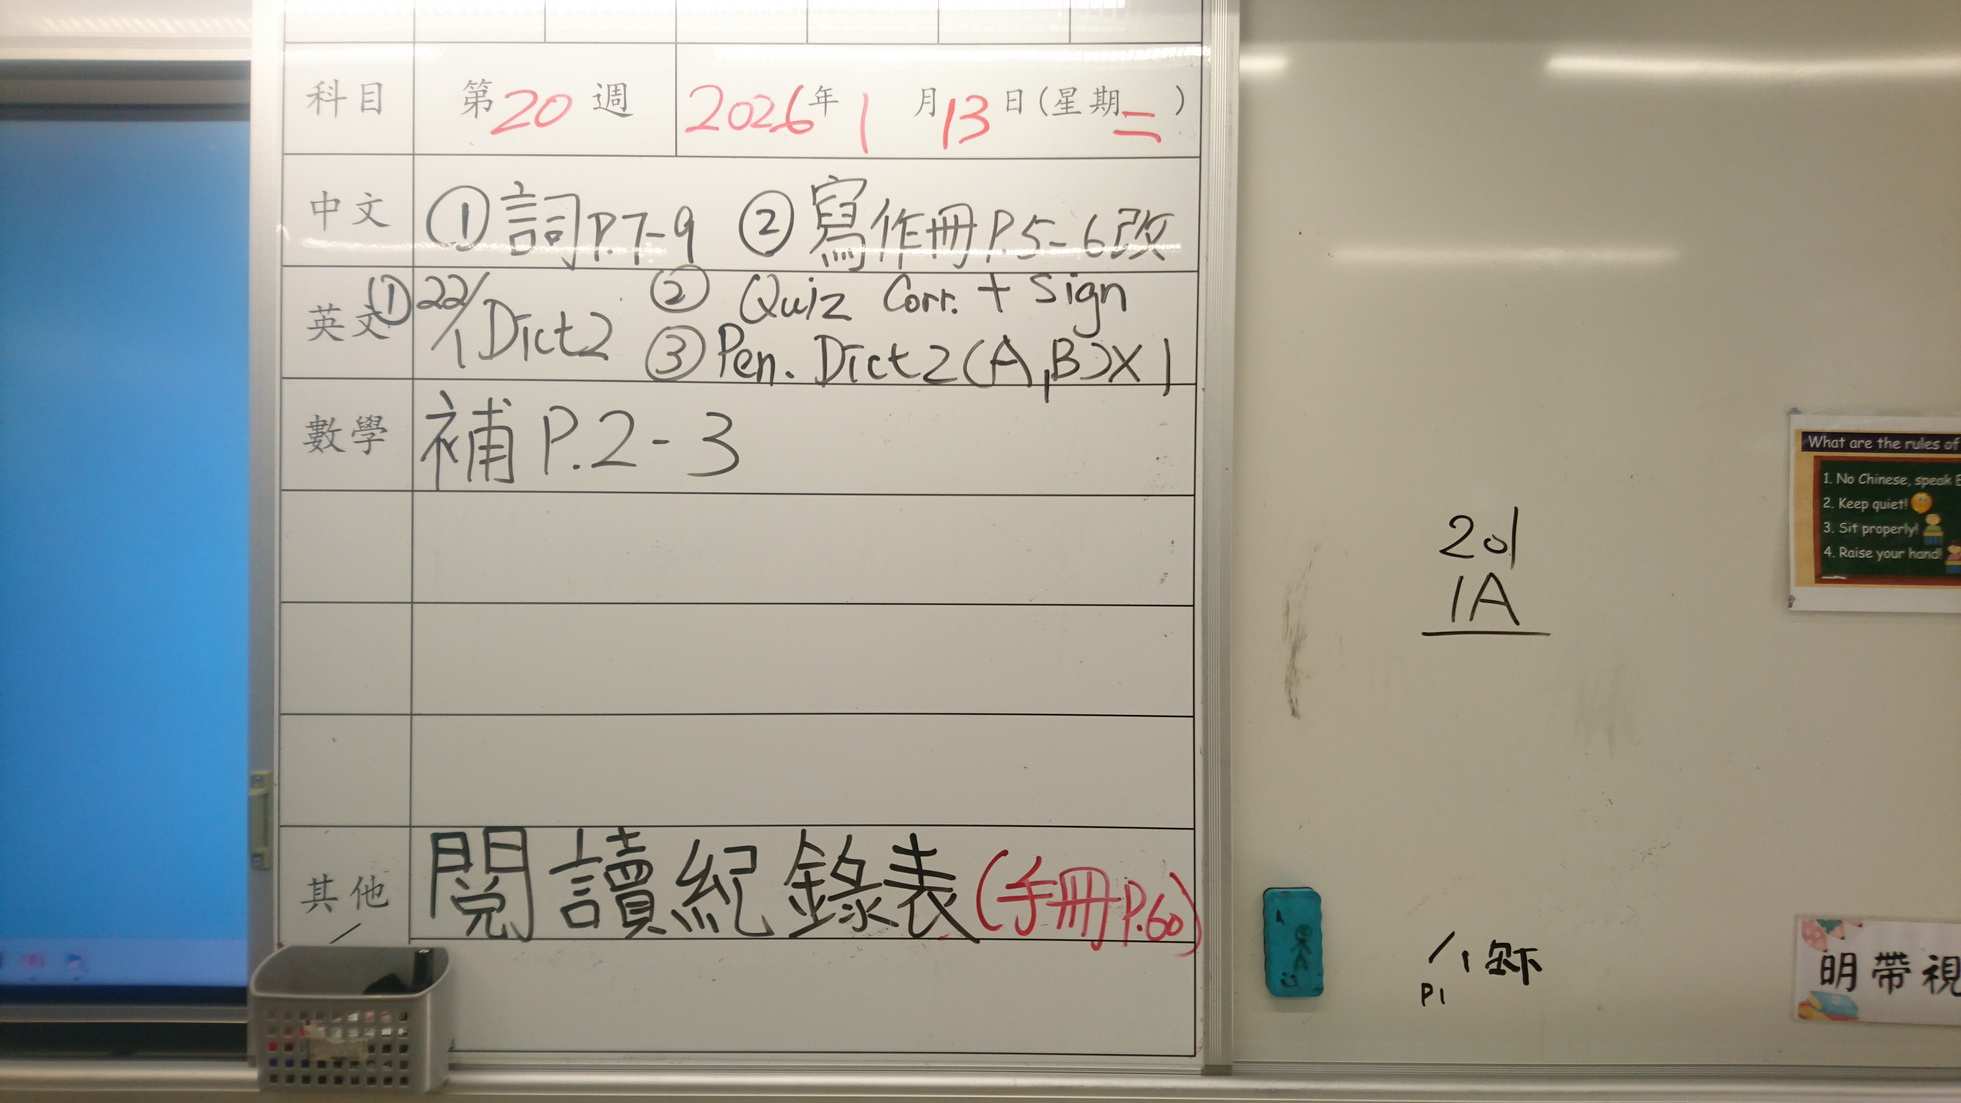 科目 第20週 2026年1月13日(星期二)
中文 ①詞P.7-9 ②寫作冊P.5-6改
英文 ①22/1 Dict2 ② Quiz Corr. + Sign
③Pen. Dict2(A,B)X1
數學 補P.2-3
其他 閱讀紀錄表(手冊P.60)
201
1A
P1
What are the rules of
1. No Chinese, speak E
2. Keep quiet!
3. Sit properly!
4. Raise your hand!
明帶視